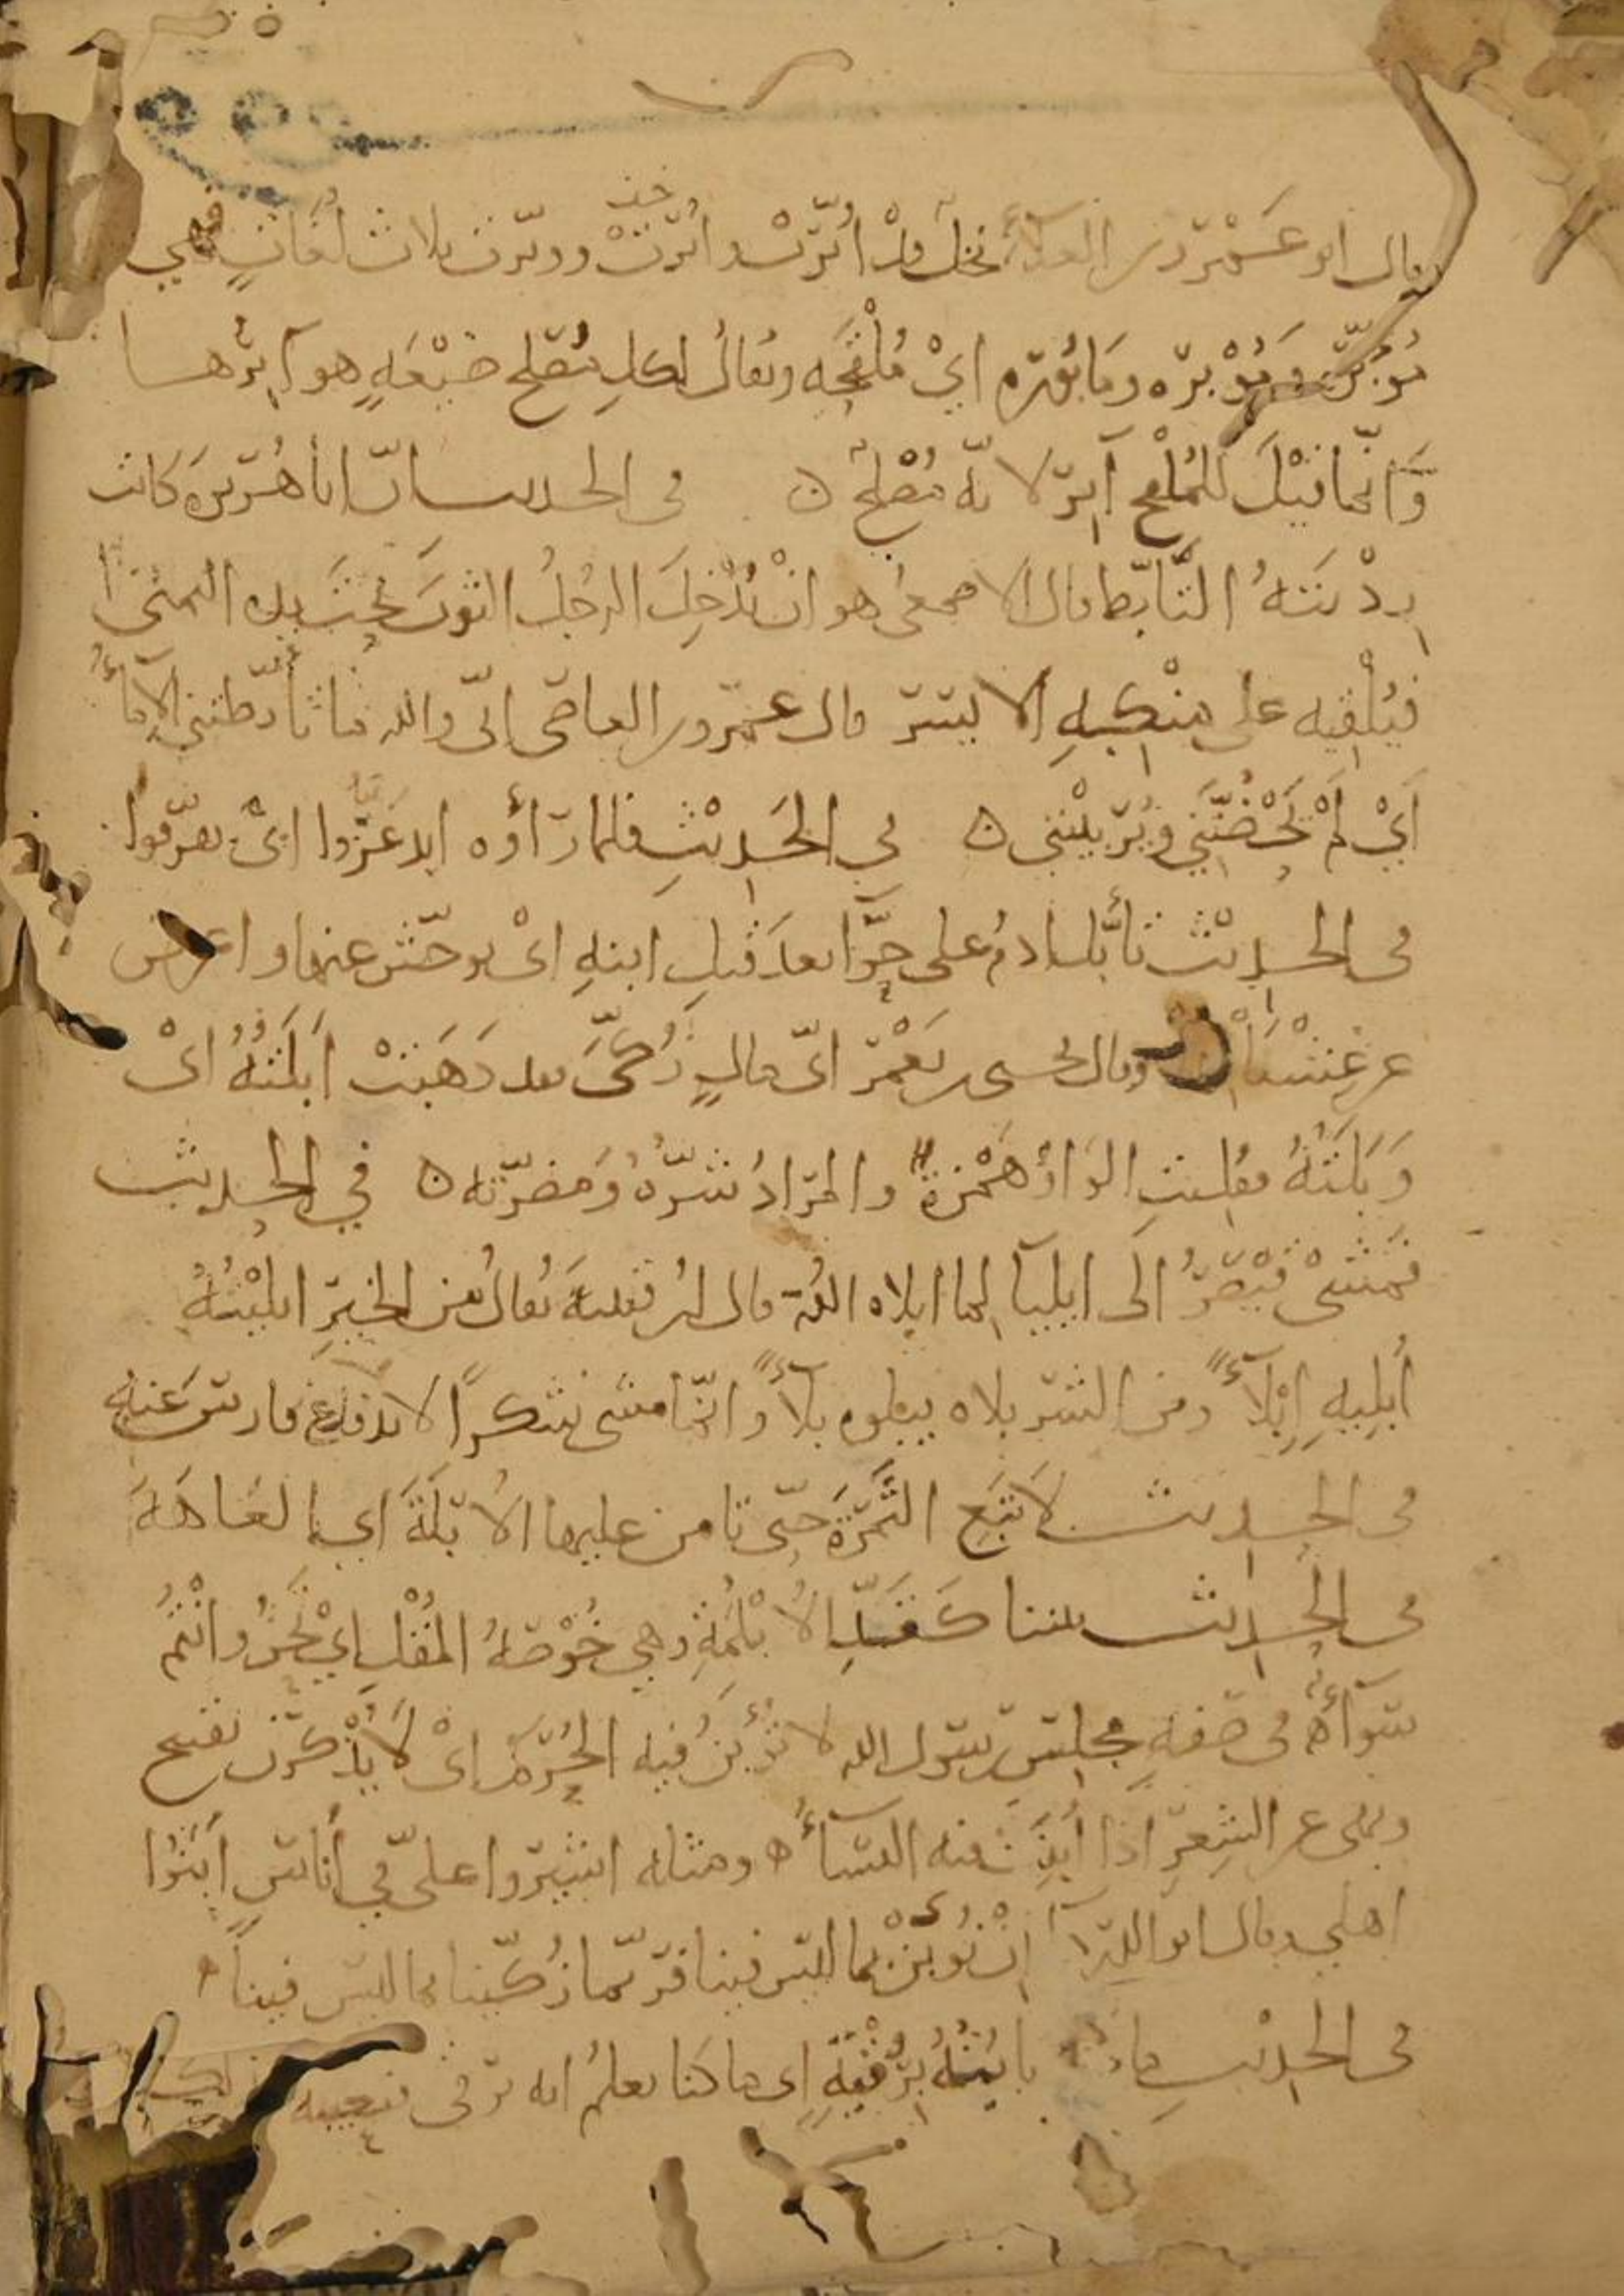 وقال ابو عَمْرو بن العلآء نخلٌ قد اُبّرتْ و اُبِرَتْ ووبرت ثلاث لُغَاتٍ فهي
مُؤبَّرة ومُوْبَره ومَابُورَه ايْ مُلْقَحَه ويُقالُ لكلِ مُصْلح ضَيْعَةٍ هو آبِرُها
وَاِنّما قيْلَ لِلْمُلْقِح آبِرٌ لانّه مُصْلِحٌ ه في الحديث انّ ابا هُرَيرَة كَانت
رِدْيَتهُ التَّابّط قال الاصمعي هو انْ يُدْخِلَ الرجُلُ الثوبَ تحْتَ يدِه اليمنَى
فيُلْقيه على مَنْكبِهِ الايسر قال عمرو بن العاص انّى والله ما تأبّطتني الامآءُ
اَيْ لَمْ تَحْضُنَّنِي ويُرَبيْنني ه في الحَديْثِ فلما رَأوْه ابدعَرُّوا ايْ تفرّقوا
في الحديْث تأبّل ادمُ على حوّآ بعد قَتلِ ابنهِ ايْ توحّش عنها واعرض
عن غِشْيَانها وقال يحيى بن يَعْمَر ايّ مالٍ زُكّىَ فقد ذَهَبَتْ اَبَلَتُهُ ايْ
وَبَلَتُهُ فقلبتِ الوَاوُ هَمْزةً والمرَادُ شَرّهُ وَمضرّته ه في الحديث
فمشىْ قيْصَرُ الَى ايليآ لما ابلاه اللهُ قال ابن قتيبةَ يُقالُ من الخيرِ ابليْتُهُ
اُبْلِيهِ اِبْلآءً ومن الشر بلاه يبلوه بلآءً وانّما مشى شكرًا لاندفاع فارس عَنه
في الحديث لاتَبَع الثَّمَرَةَ حتّى تامن عليها الاُبْلَةَ اي العَاهَةَ
في الحديث بيننا كَقَدِّ الاُبْلُمَةِ وهي خُوْصَةُ المُقْلِ ايْ نَحْنُ وانْتُمْ
سَوَآءٌ ه في صفهِ مجلسِ رسول الله لا تُؤْبَنُ فيه الحُرَمُ ايْ لَا يُذْكَرْنَ بقبيح
ونهى عن الشِعرِ اذَا اُبِنَتْ فيه النسآءُ ه ومثله اشيروا علىّ في اُنَاسٍ اَبَنُوا
اهلي وقال ابو الدردآ انْ نُؤْبَنْ بما ليس فينا فربّما زُكّينا بما ليس فينا ه
في الحديْث ما نَأْبُنُهُ بِرُقْيَةٍ اي ما كنا نعلمُ انه يرقى فنعيبه بذلك